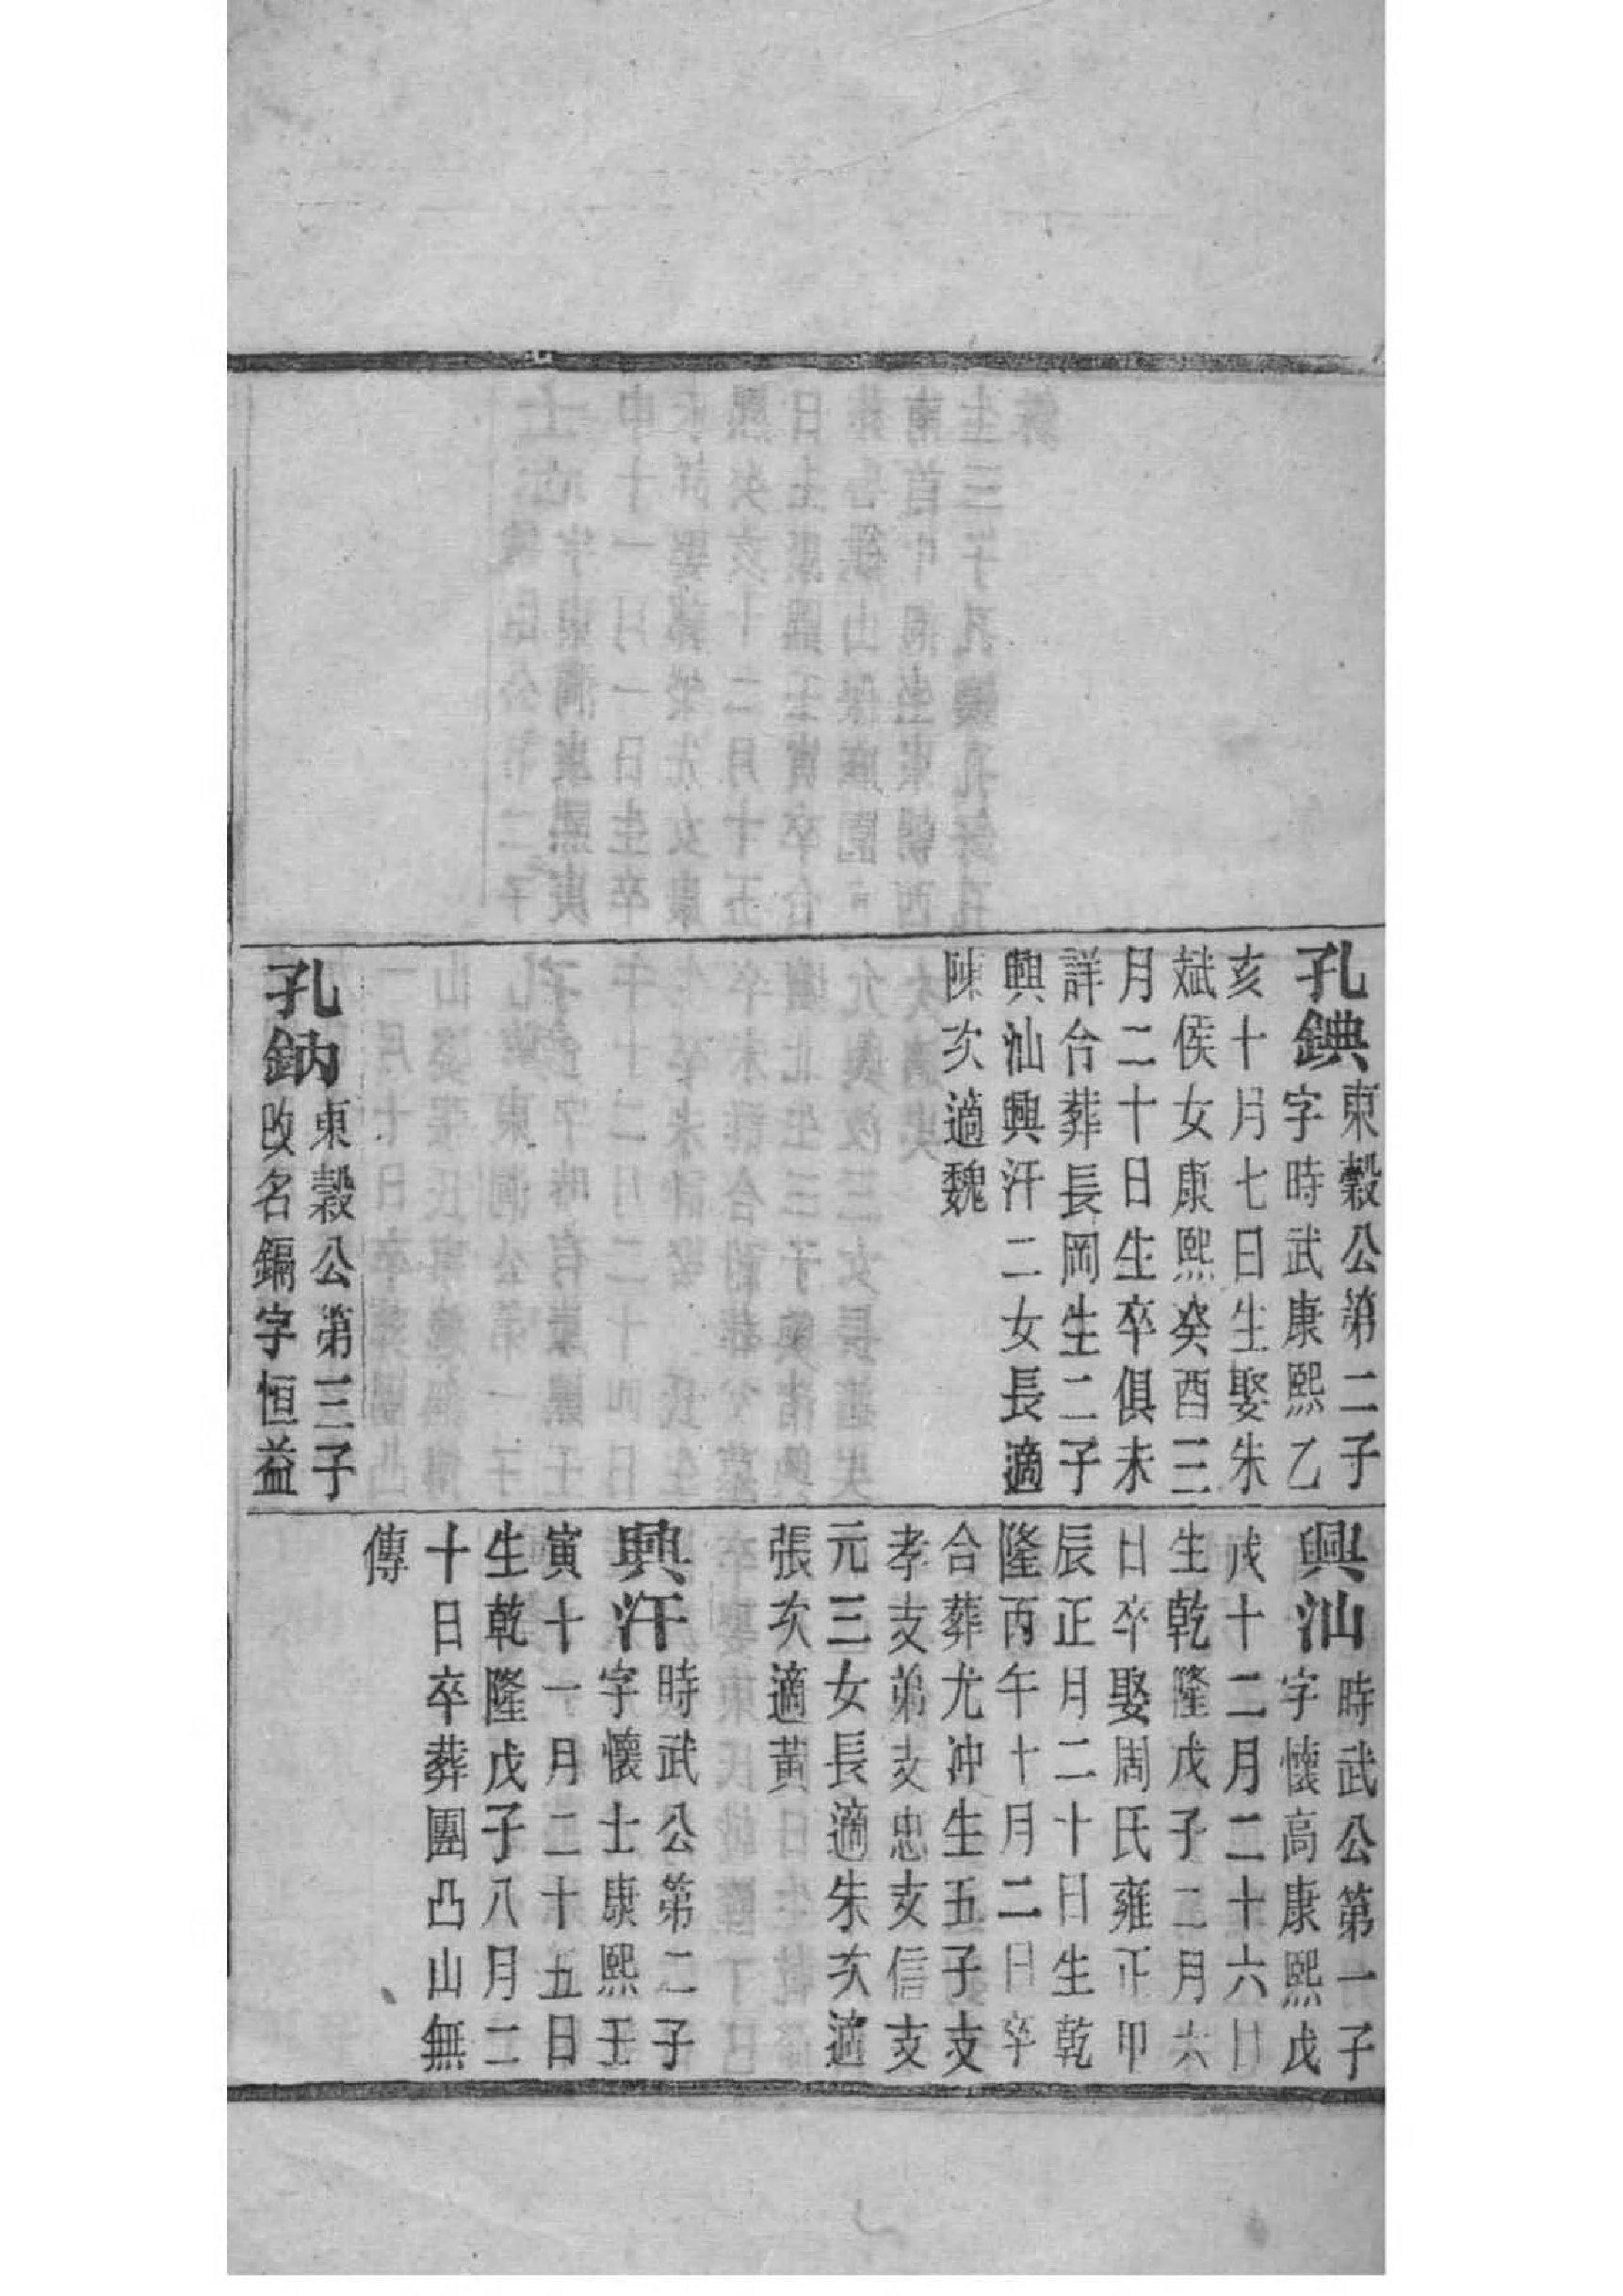 孔錪
東榖公第二子
字時武康熙乙
亥十月七日生娶朱
斌侯女康熙癸酉三
月二十日生卒俱未
詳合葬長岡生二子
興汕興汗二女長適
陳次適魏
孔鈉
東榖公第三子
改名鎘字恒益
興汕
時武公第一子
字懷高康熙戊
戌十二月二十六日
生乾隆戊子二月六
日卒娶周氏雍正甲
辰正月二十日生乾
隆丙午十月二日卒
合葬尤冲生五子支
孝支弟支忠支信支
元三女長適朱次適
張次適黃
興汗
時武公第二子
字懷士康熙壬
寅十一月二十五日
生乾隆戊子八月二
十日卒葬團凸山無
傳